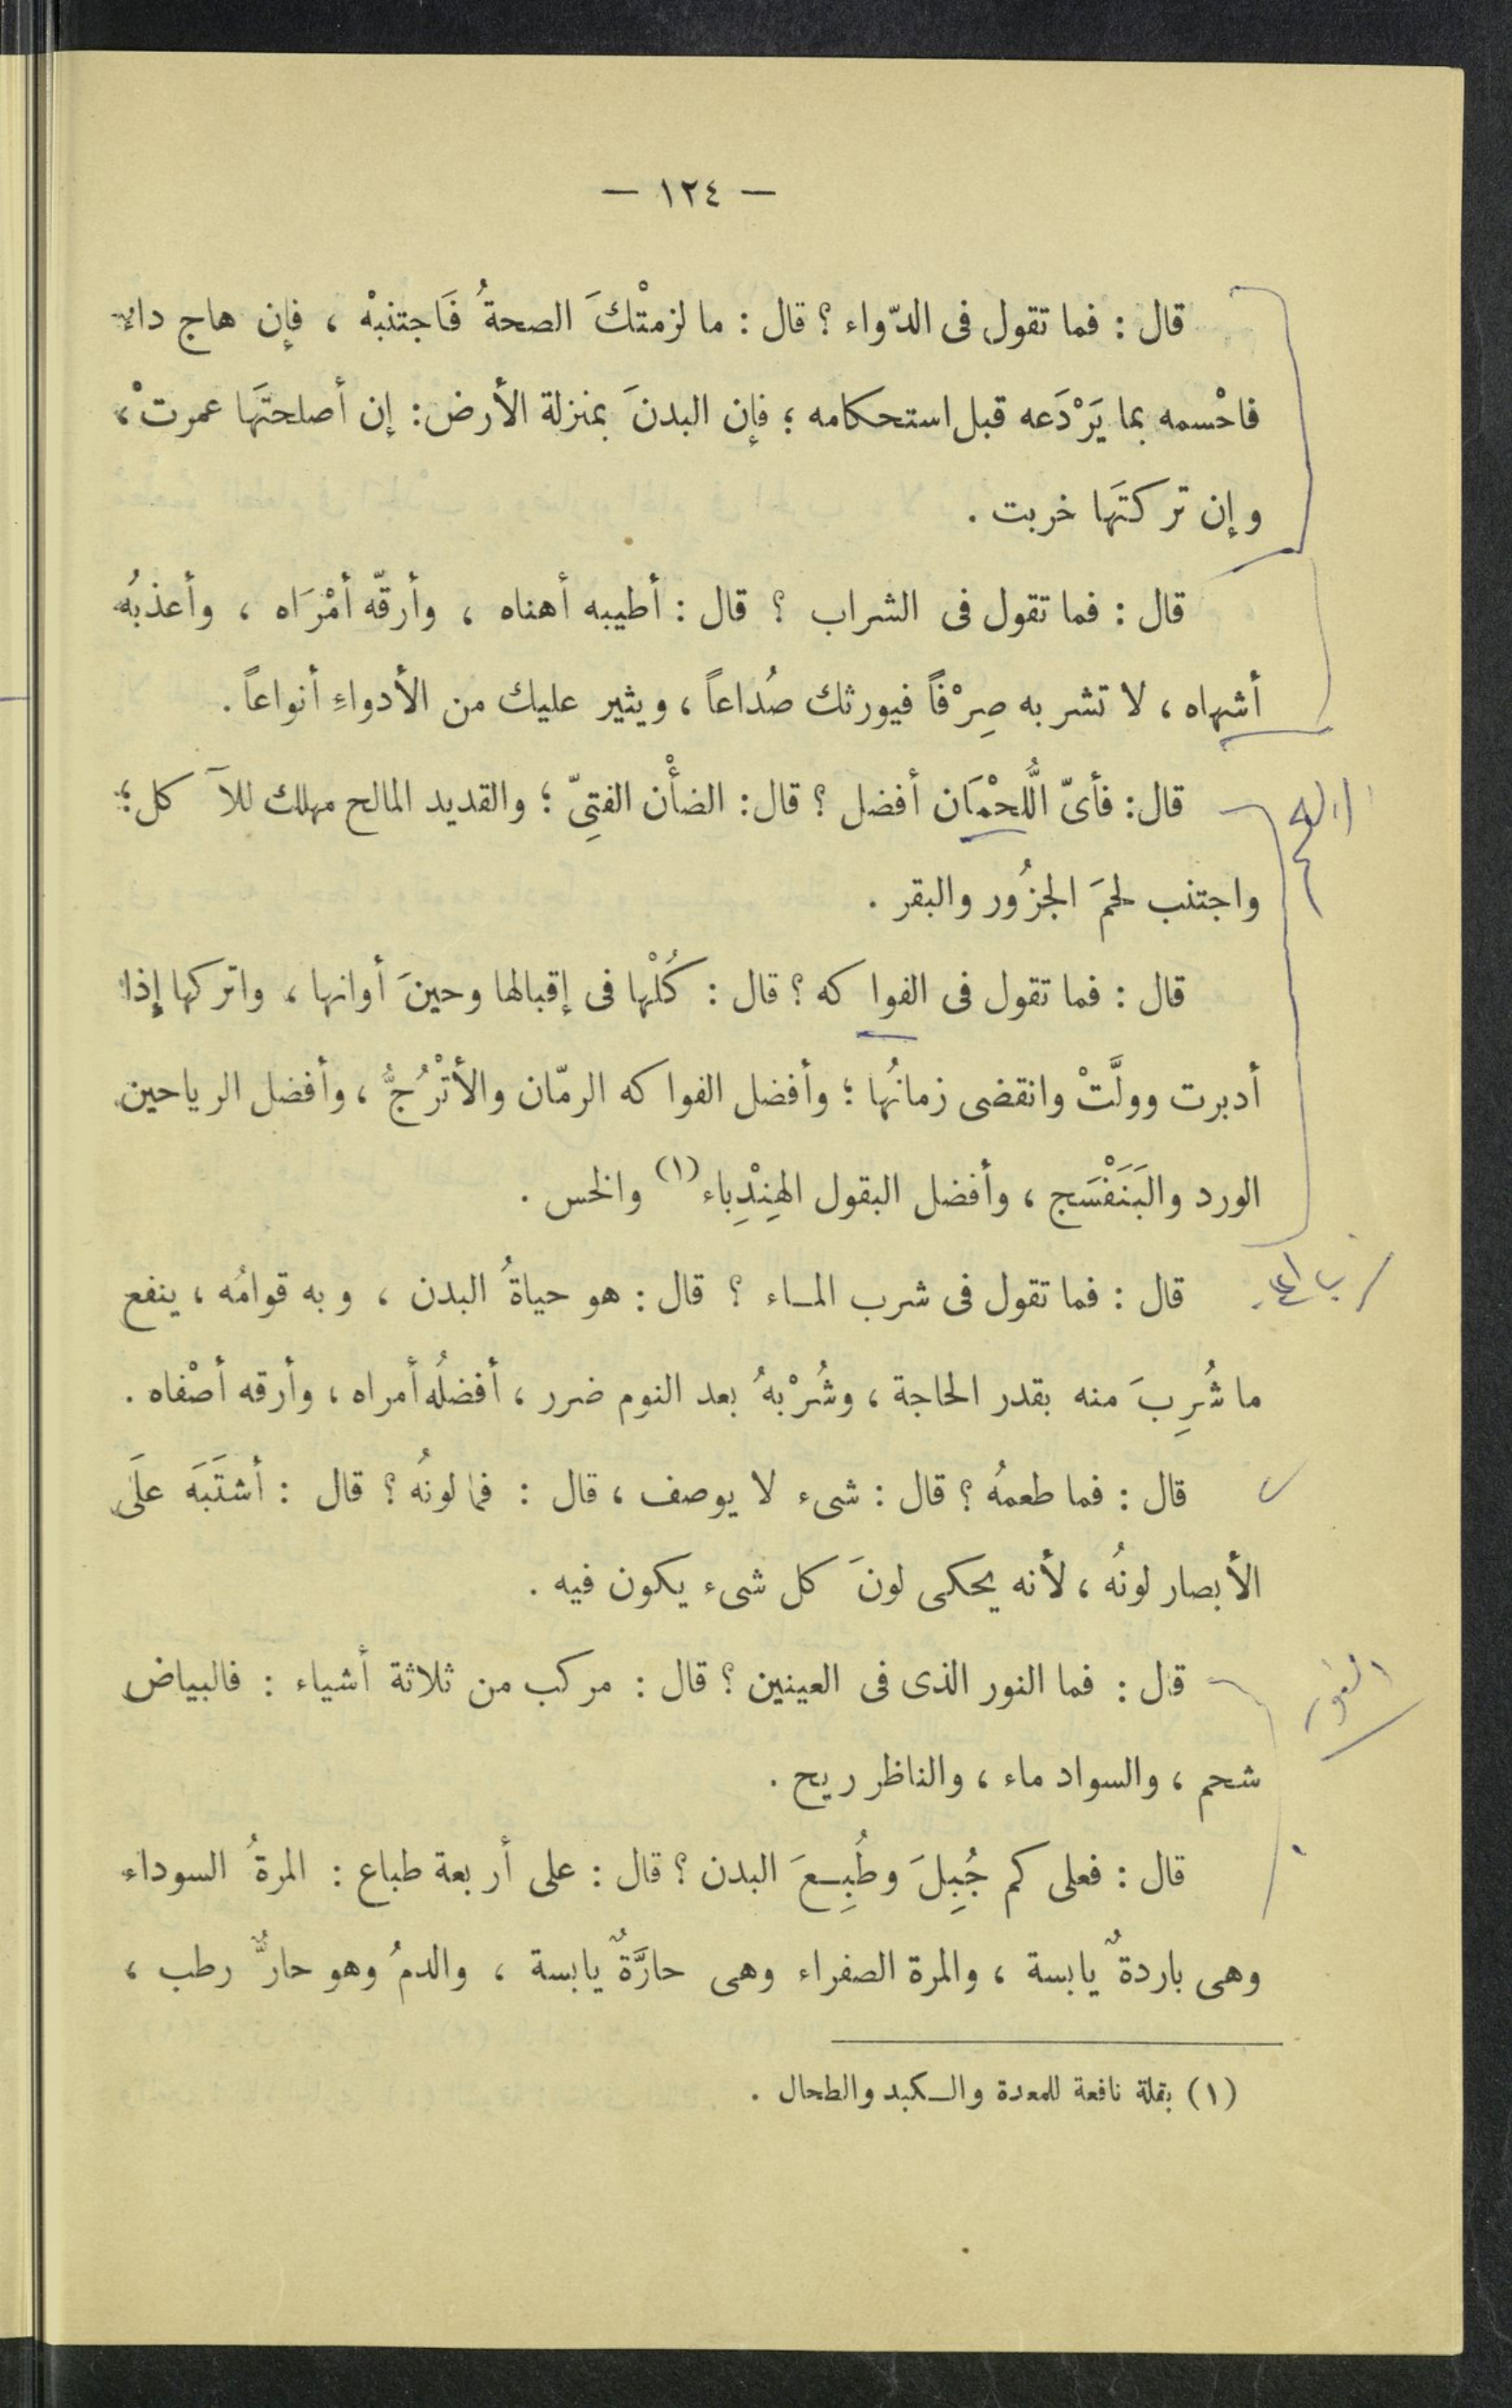 — ١٢٤ —
قال : فما تقول فى الدّواء ؟ قال : ما لزمتْكَ الصحةُ فَاجتنبْه ، فإن هاج داء
فاحْسمه بما يَرْدَعه قبل استحكامه ؛ فإن البدنَ بمنزلة الأرض : إن أصلحتَها عمرتْ ،
وإن تركتَها خربت .
قال : فما تقول فى الشراب ؟ قال : أطيبه أهناه ، وأرقّه أمْرَاه ، وأعذبُه
أشهاه ، لا تشربه صِرْفاً فيورثك صُداعاً ، ويثير عليك من الأدواءِ أنواعاً .
قال : فأىّ اللُّحْمَان أفضل ؟ قال : الضأْن الفتِىّ ؛ والقديد المالح مهلك للآكل ؛
واجتنب لحمَ الجزُور والبقر .
قال : فما تقول فى الفواكه ؟ قال : كُلْها فى إقبالها وحينَ أوانها ، واتركها إذا
أدبرت وولَّتْ وانقضى زمانُها ؛ وأفضل الفواكه الرمّان والأتْرُجُّ ، وأفضل الرياحين
الورد والبَنَفْسَج ، وأفضل البقول الهِنِدِباء (١) والخس .
قال : فما تقول فى شرب المـاء ؟ قال : هو حياةُ البدن ، وبه قوامُه ، ينفع
ما شُرِبَ منه بقدر الحاجة ، وشُرْبهُ بعد النوم ضرر ، أفضلُه أمراه ، وأرقه أصْفاه .
قال : فما طعمهُ ؟ قال : شىء لا يوصف ، قال : فما لونُه ؟ قال : أشتَبَه علَى
الأبصار لونُه ، لأنه يحكى لونَ كل شىء يكون فيه .
قال : فما النور الذى فى العينين ؟ قال : مركب من ثلاثة أشياء : فالبياض
شحم ، والسواد ماء ، والناظر ريح .
قال : فعلى كم جُبِلَ وطُبِـعَ البدن ؟ قال : على أربعة طباع : المرةُ السوداء
وهى باردةٌ يابسة ، والمرة الصفراء وهى حارَّةٌ يابسة ، والدمُ وهو حارٌّ رطب ،
(١) بقلة نافعة للمعدة والـكبد والطحال .
النور